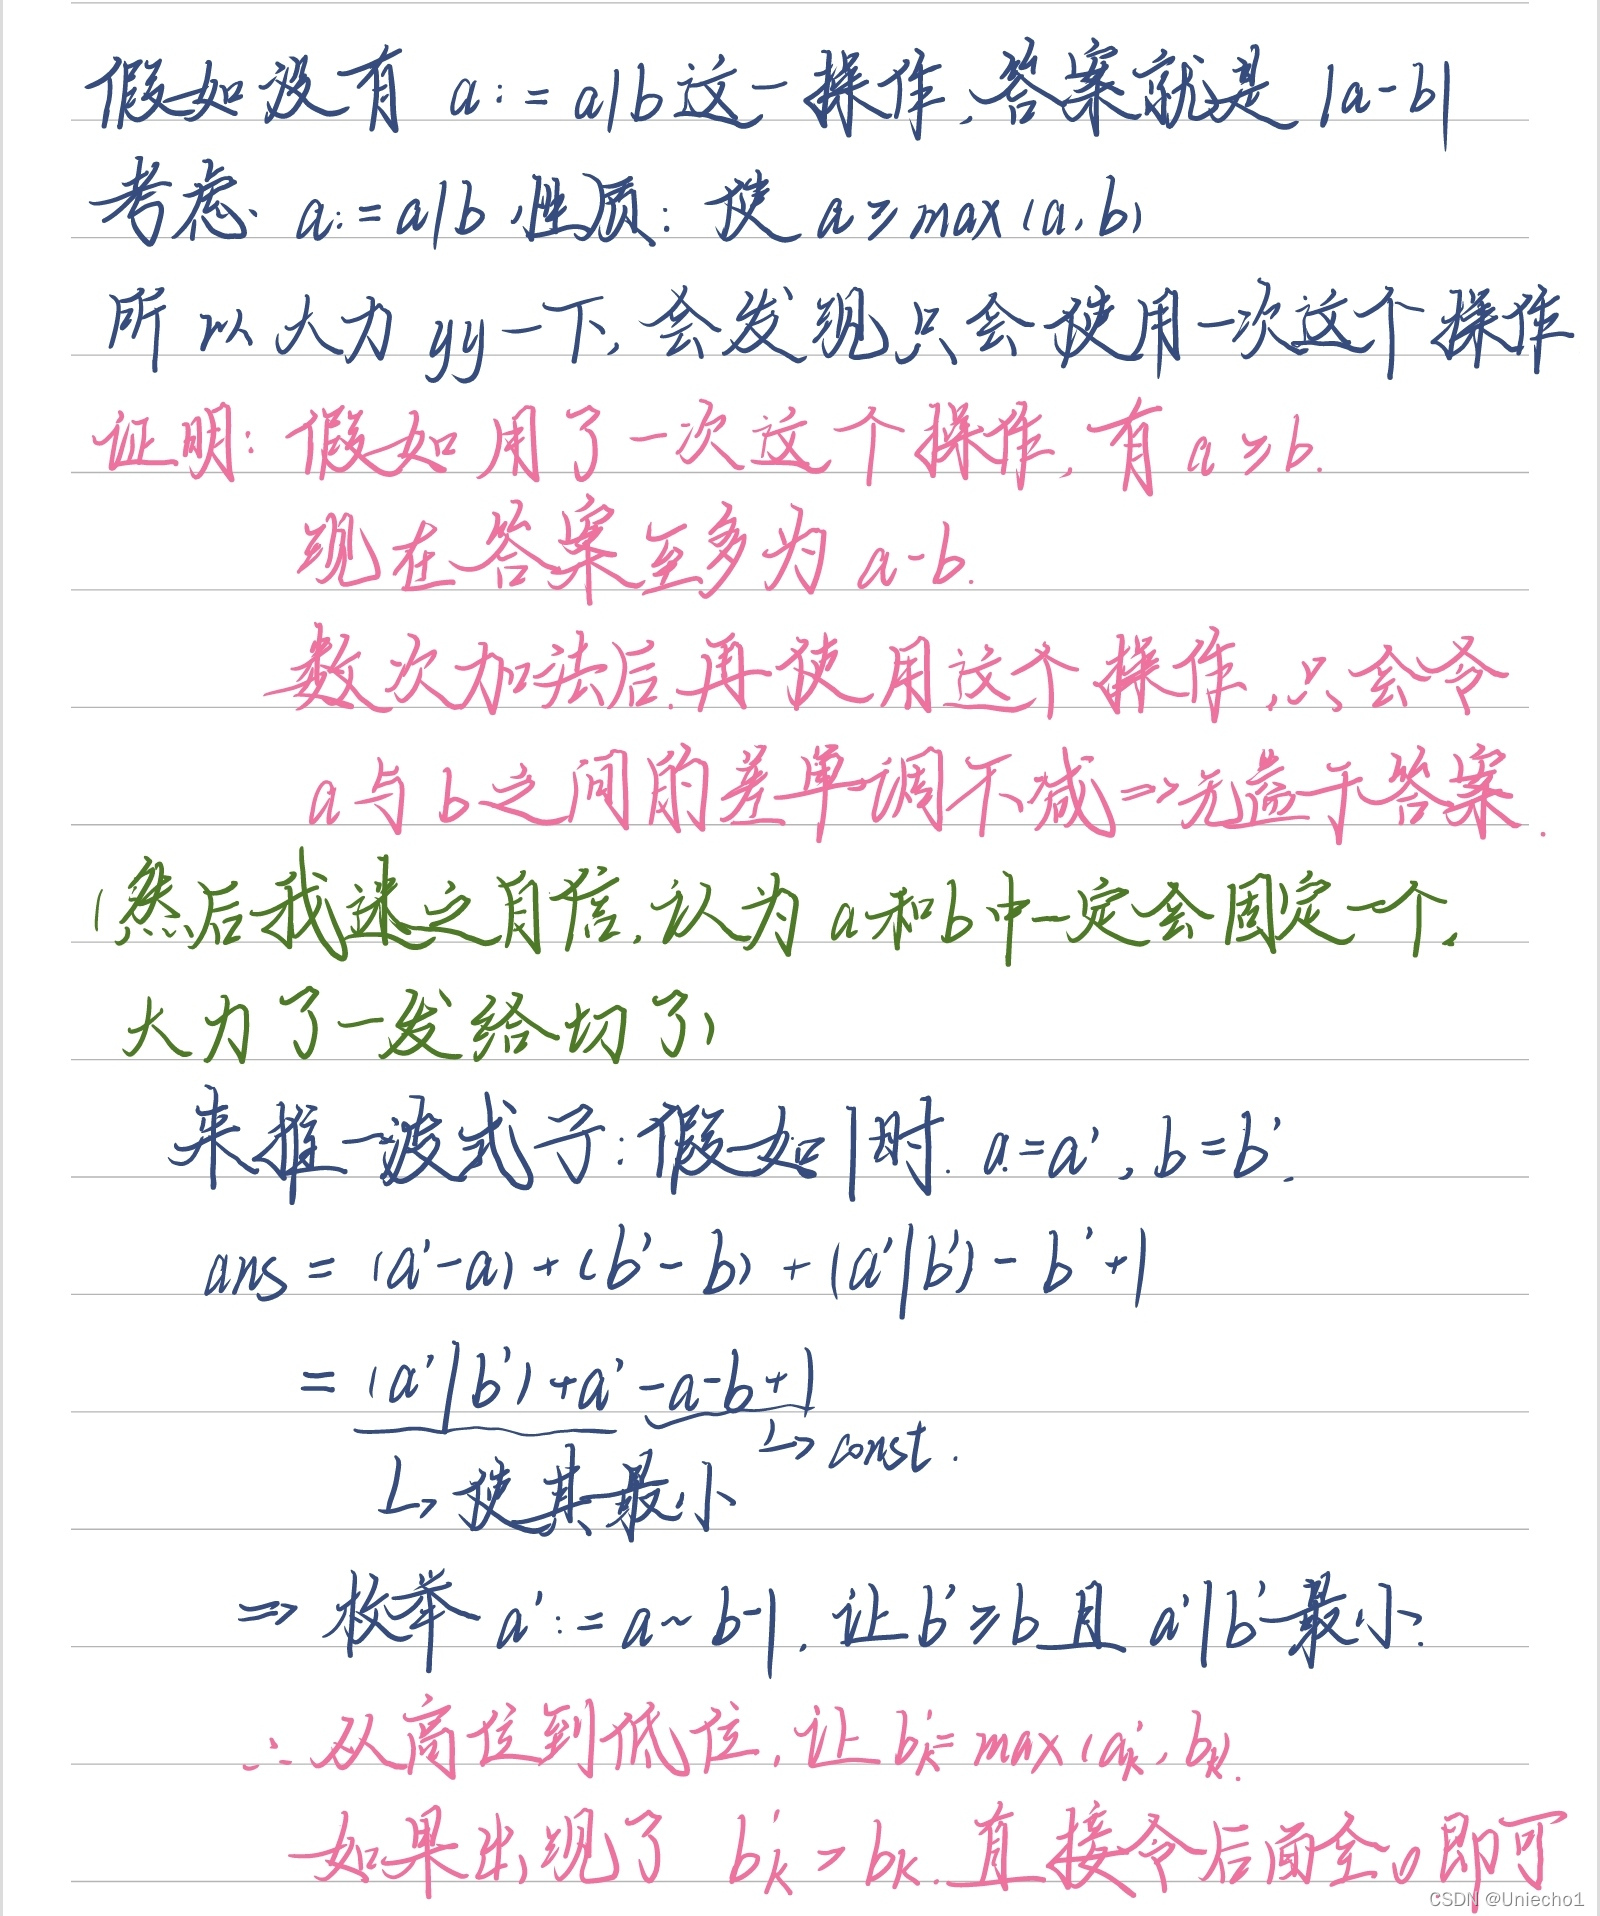 假如没有 a:=a|b这一操作,答案就是 |a-b|
考虑. a:=a|b 性质: 使 a≥max(a,b)
所以大力yy一下,会发现只会使用一次这个操作
证明: 假如用了一次这个操作,有a≥b.
现在答案至多为 a-b.
数次加法后.再使用这个操作,只会令
a与b之间的差单调不减=>无益于答案.
(然后我迷之自信,认为a和b中一定会固定一个,
大力了一发给切了)
来推一波式子:假如|时. a=a',b=b'.
ans = (a'-a)+(b'-b)+(a'|b')-b'+1
= (a'|b')+a'-a-b+1
↳ const.
↳ 使其最小
=> 枚举 a':=a~b-1. 让b'≥b且 a'|b'最小.
∴ 从高位到低位,让 b'k=max(a'k,bk).
如果出现了 b'k>bk.直接令后面全0即可
CSDN @Uniecho1